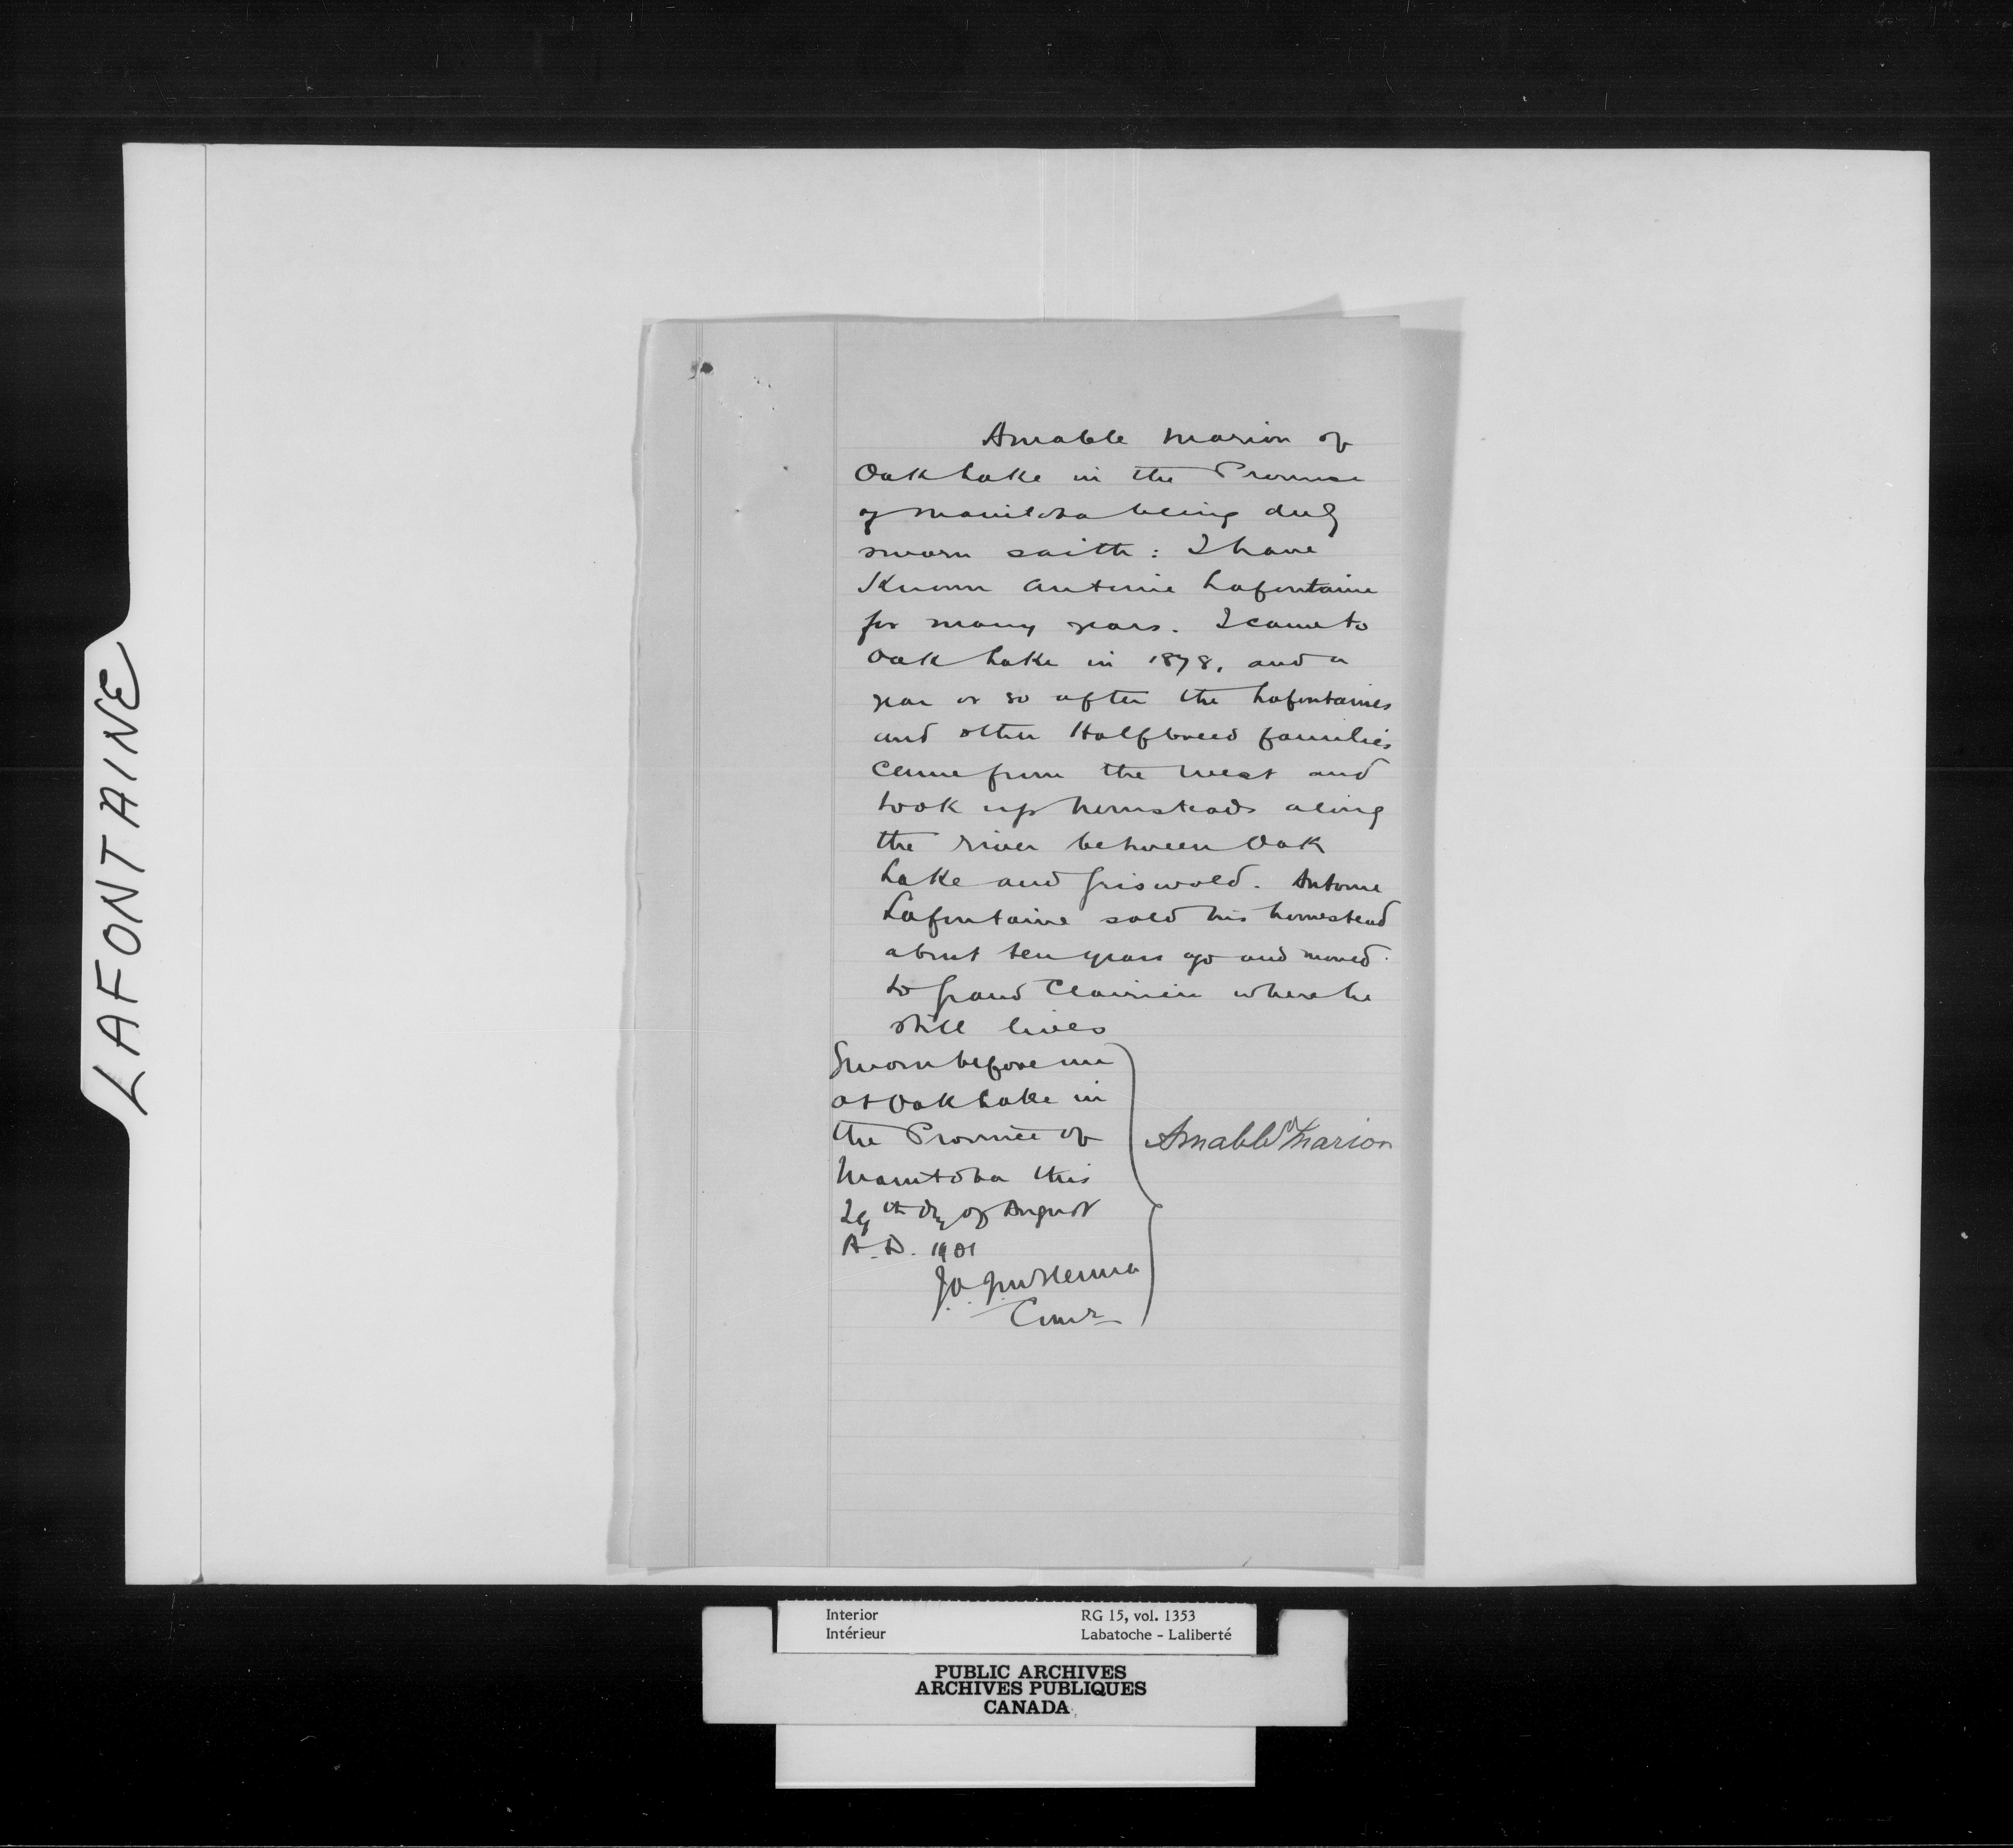 LAFONTAINE
Amable Marion of
Oak Lake in the Province
of Manitoba being duly
sworn saith: I have
Known Antoine Lafontaine
for many years. I came to
Oak Lake in 1878, and a
year or so after the Lafontaines
and other Halfbreed families
came from the West and
took up homesteads along
the river between Oak
Lake and Griswold. Antoine
Lafontaine sold his homestead
about ten years ago and moved
to Grand Clairiere where he
still lives
Sworn before me
at Oak Lake in
the Province of
Manitoba this
29th day of August
A.D. 1901
Amable Marion
J.A.
Comr
Interior
Intérieur
RG 15, vol. 1353
Labatoche - Laliberté
PUBLIC ARCHIVES
ARCHIVES PUBLIQUES
CANADA